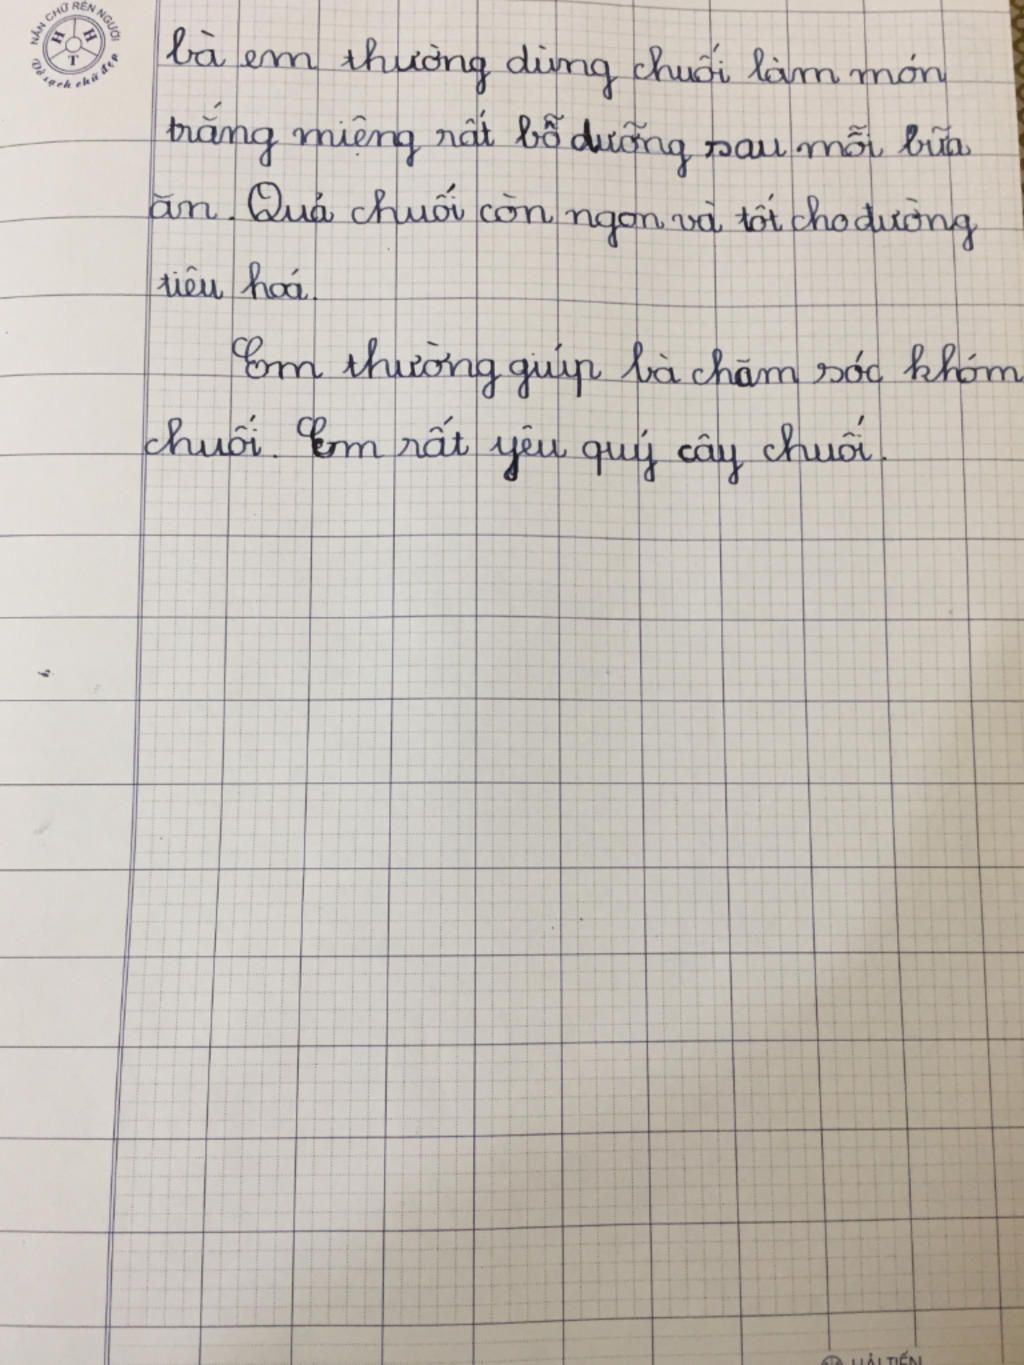 NẮN CHỮ RÈN NGƯỜI
H H T
Vở sạch chữ đẹp
bà em thường dùng chuối làm món
trắng miệng rất bỗ dưỡng sau mỗi bữa
ăn. Quả chuối còn ngon và tốt cho đường
tiêu hoá.
Em thường giúp bà chăm sóc khóm
chuối. Em rất yêu quý cây chuối.
HẢI TIẾN